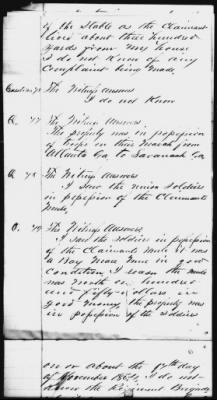 of the Stable as the Claimant
lives about three hundred
yards from my house
I do not know of any
Complaint being made,
Question 76 The Witness Answers
I do not Know
Q. 77 The Witness Answers
The property was in possession
of troops on their march from
Atlanta Ga to Savannah Ga
Q 78 The Witness Answers
I saw the union Soldiers
in possession of the Claimants
Mule,
Q. 79 The Witness Answers
I saw the soldiers in possession
of the Claimants Mule it was
a Bay Mare Mule in good
Condition I reason the mule
was worth one hundred
and fifty dollars in
good money, the property was
in possession of the soldiers
on or about the 17th day
of November 1864, I do not
know the Regiment Brigade